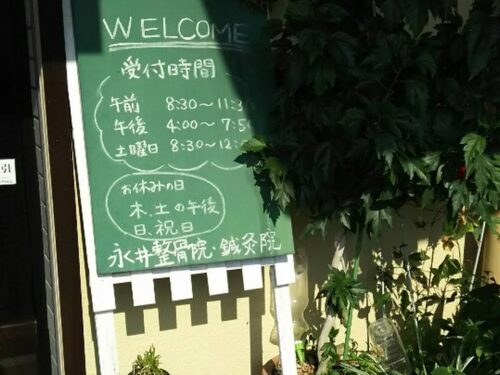 WELCOME
受付時間
午前 8:30～11:30
午後 4:00～7:50
土曜日 8:30～12:
お休みの日
木.土の午後
日.祝日
永井整骨院・鍼灸院
引